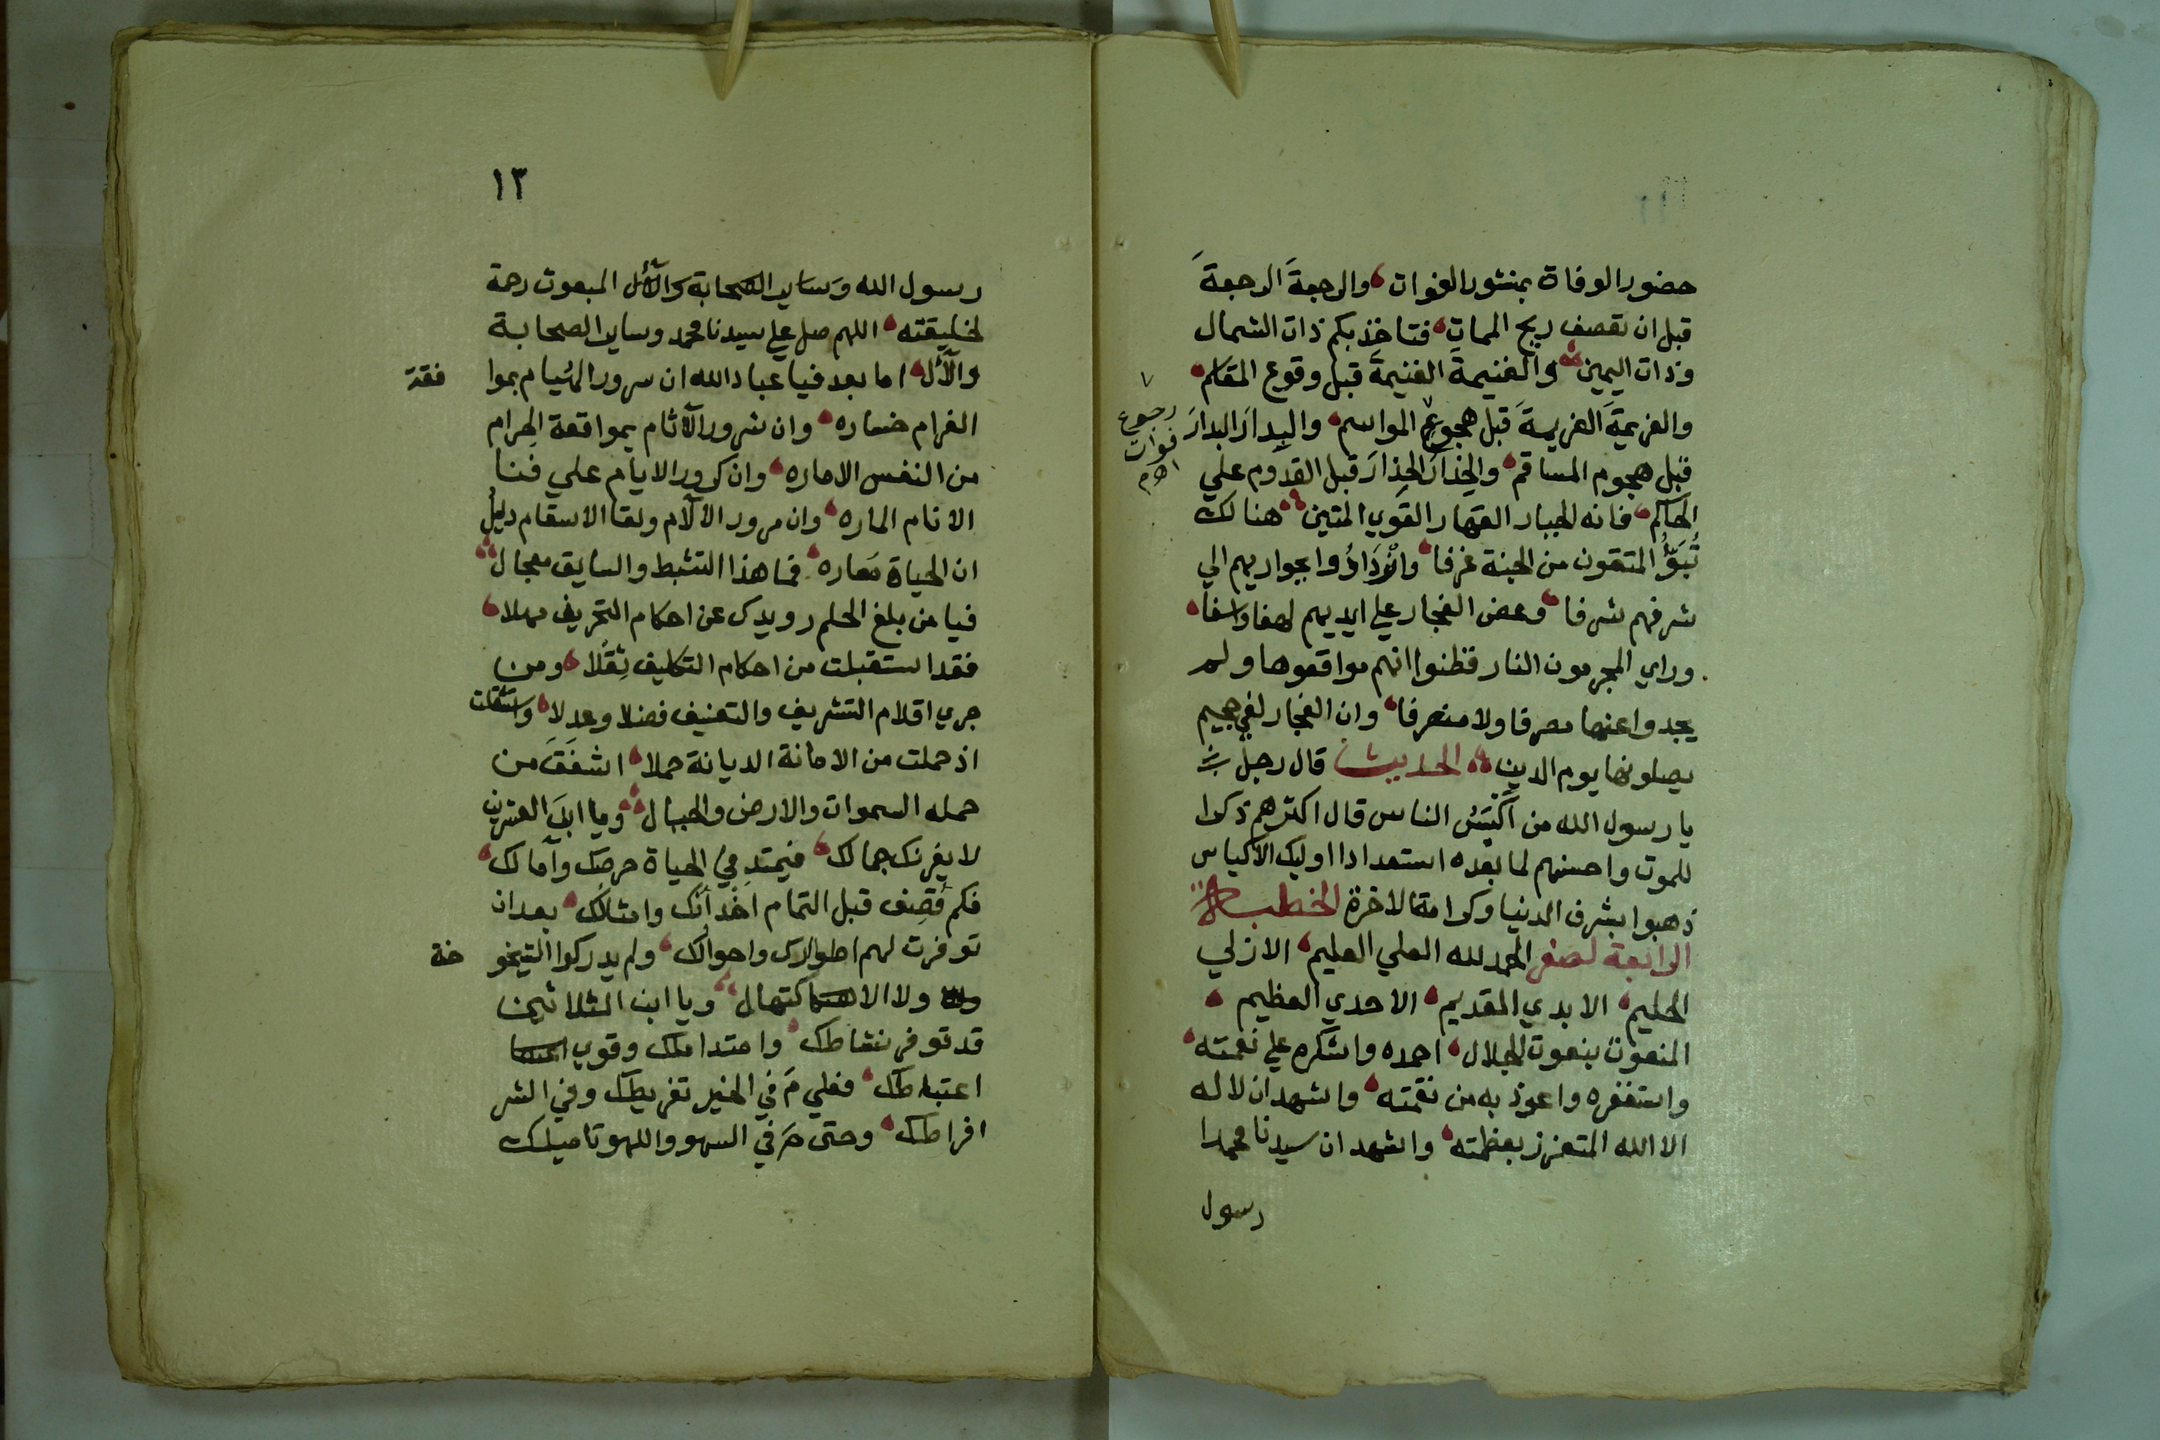 حضور الوفاة بمنشور الفوات والرجعةَ الرجعةَ
قبل ان تقصف ريح الممات فتاخذ بكم ذات الشمال
وذات اليمين والغنيمةَ الغنيمةَ قبل وقوع المقاسم
والعزيمةَ العزيمةَ قبل هجوع المواسم والبدارَ البدارَ
رجوع
فوات
قبل هجوم المساقم والحذارَ الحذارَ قبل القدوم علي
الحاكم فانه الجبار القهار القوي المتين هنالك
تُبَوَّؤُ المتقون من الجنة غرفا وازدادُوا بجواريهم الي
شرفهم شرفا وعض الفجار علي ايديهم لهفا واسفا
وراي المجرمون النار فظنوا انهم مواقعوها ولم
يجدوا عنها مصرفا ولا منصرفا وان الفجار لفي جحيم
يصلونها يوم الدين الحديث قال رجل
يا رسول الله من اَكْيَسُ الناس قال اكثرهم ذكرا
للموت واحسنهم لما بعده استعدادا اوليك الاكياس
ذهبوا بشرف الدنيا وكرامة الاخرة الخطبة
الرابعة لصفر الحمد لله العلي العليم الازلي
الحليم الابدي القديم الاحدي العظيم
المنعوت بنعوت الجلال احمده واشكره علي نعمته
واستغفره واعوذ به من نقمته واشهد ان لا اله
الا الله المتعزز بعظمته واشهد ان سيدنا محمدا
رسول
١٣
رسول الله وساير الصحابة والآل المبعوث رحمة
لخليقته اللهم صل علي سيدنا محمد وساير الصحابة
والآل اما بعد فيا عباد الله ان سرور الهُيام بموا
فقة
الغرام خساره وان شرور الآثام بمواقعة الحرام
من النفس الاماره وان كرور الايام علي فنا
الانام اماره وان مرور الآلام ولقا الاسقام دليل
ان الحياة مُعاره فما هذا التثبط والسايق معجال
فيا من بلغ الحلم رويدك عن احكام التحريف مهلا
فقد استقبلت من احكام التكليف ثِقَلا ومن
جري اقلام التشريف والتعنيف فضلا وعدلا واستثقلت
اذ حملت من الامانة الديانة حملا اشفَقَ من
حمله السموات والارض والجبال ويا ابنَ العشرين
لا يغرنك جمالك فيمتد في الحياة حرصك وآمالك
فكم قُصِف قبل التمام اخدانُك وامثالك بعد ان
توفرت لهم اطوالك واحوالك ولم يدركوا الشيخو
خة
ولا الاكتهال ويا ابن الثلاثين
قد توفر نشاطك وامتد املك وقوي
اعتباطك فعلي مَ في الخير تفريطك وفي الشر
افراطك وحتى مَ في السهو واللهو تاميلك